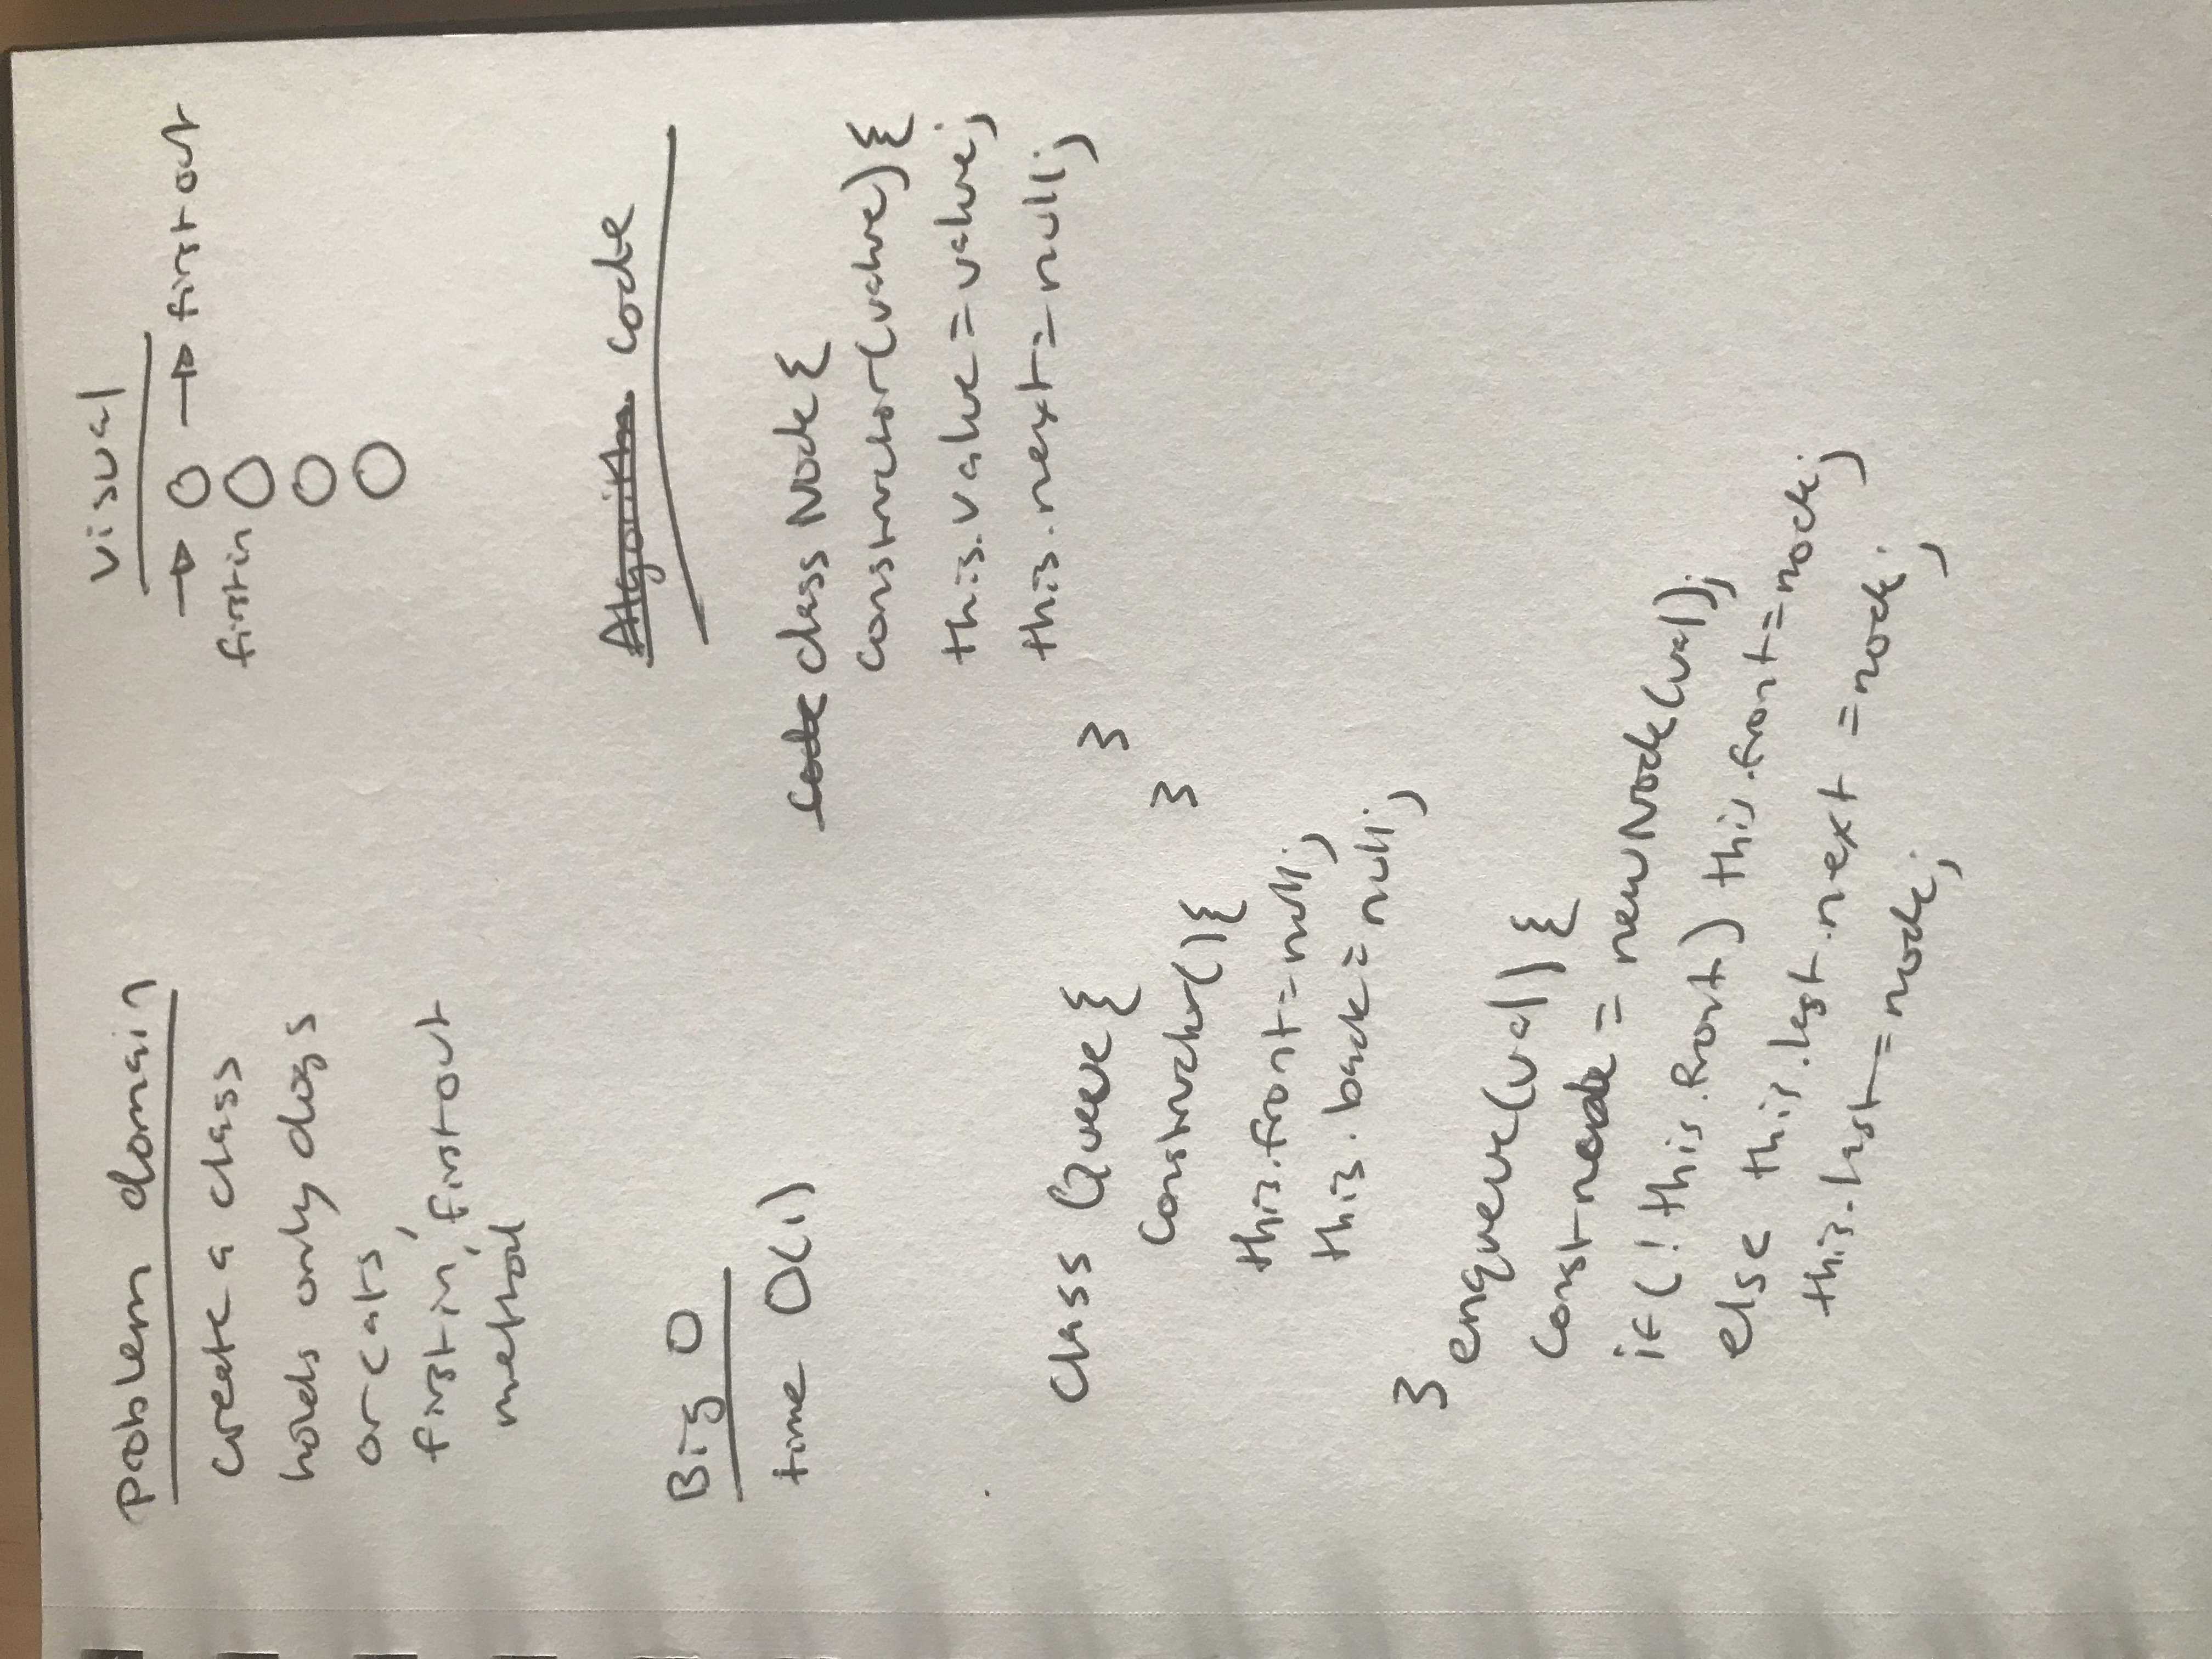 Problem domain
create a class
holds only dogs
or cats,
first in, first out
method
visual
first out
first in
Big O
time O(1)
Algorithm code
code class Node {
constructor(value) {
this.value = value;
this.next = null;
}
}
class Queue {
constructor() {
this.front = null;
this.back = null;
}
enqueue(val) {
const node = new Node(val);
if (! this.front) this.front = node;
else this.last.next = node;
this.last = node;